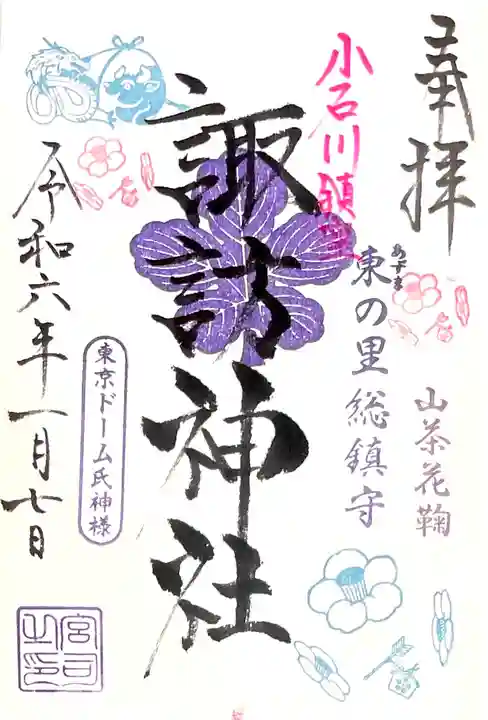 奉拝
あずま
東の里総鎮守
山茶花鞠
小石川鎮座
諏訪神社
東京ドーム氏神様
令和六年一月七日
宮司之印